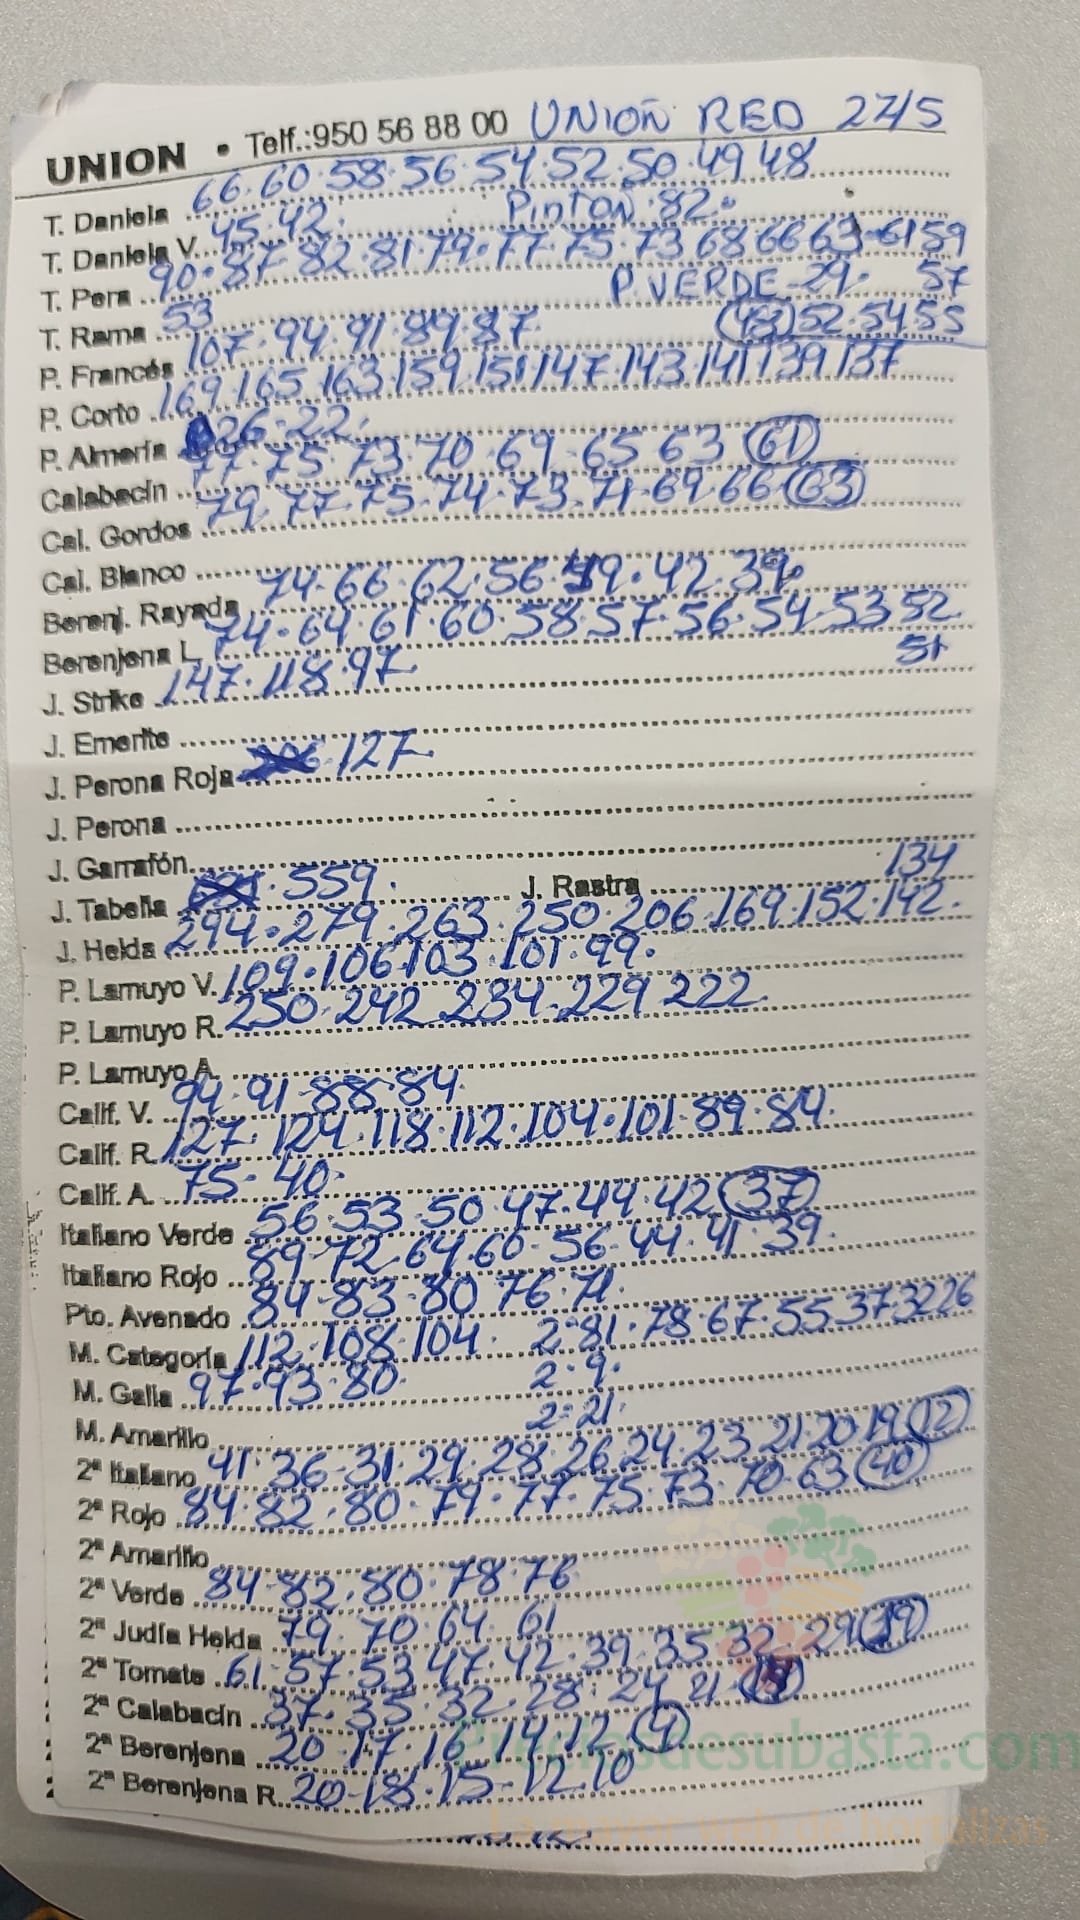 UNION • Telf.:950 56 88 00 UNION RED 27/5
T. Daniela 66. 60. 58. 56. 54. 52. 50. 49 48
T. Daniela V. 45. 42. PINTON. 82.
T. Pera 90. 87. 82. 81. 79. 77. 75. 73 68 66 63 61 59
T. Rama 53 P. VERDE - 29. 57
P. Francés 107. 94. 91. 89. 87. (48) 52. 54 55
P. Corto 169. 165. 163. 159. 151. 147. 143. 141 139 137
P. Almería 26. 22.
Calabacín 77. 75. 73. 70. 69. 65 63 (61)
Cal. Gordos 79. 77. 75. 74. 73. 71. 69. 66 (63)
Cal. Blanco
Berenj. Rayada 74. 66. 62. 56. 49. 42. 39.
Berenjena L 74. 64. 61. 60. 58. 57. 56. 54. 53 52
J. Strike 147. 118. 97 51
J. Emerite
J. Perona Roja 127
J. Perona
J. Garrafón
J. Tabella 559. J. Rastra 134
J. Helda 294. 279. 263. 250. 206. 169. 152. 142.
P. Lamuyo V. 109. 106 103 101. 99.
P. Lamuyo R. 250. 242 234. 229 222
P. Lamuyo A.
Calif. V. 94. 91. 88. 84
Calif. R. 127. 124. 118. 112. 104. 101. 89. 84.
Calif. A. 75. 40.
Italiano Verde 56. 53. 50. 47. 44. 42 (37)
Italiano Rojo 89. 72. 64. 60. 56. 44. 41. 39.
Pto. Avenado 84. 83. 80 76. 71.
M. Categoría 112. 108. 104. 2ª 81. 78. 67. 55 37 32 26
M. Galia 97. 93. 80. 2ª 9.
M. Amarillo 2ª 21.
2ª Italiano 41. 36. 31. 29. 28. 26. 24. 23 21. 20. 19 (12)
2ª Rojo 84. 82. 80. 79. 77. 75. 73. 70. 63 (40)
2ª Amarillo
2ª Verde 84. 82. 80. 78. 76
2ª Judía Helda 79. 70. 64. 61
2ª Tomate 61. 57. 53 47. 42. 39. 35 32. 29 (19)
2ª Calabacín 37. 35. 32. 28. 24 21
2ª Berenjena 20. 17. 16 14. 12. (4)
2ª Berenjena R. 20. 18. 15. 12. 10
Preciosdesubasta.com
La mayor web de hortalizas